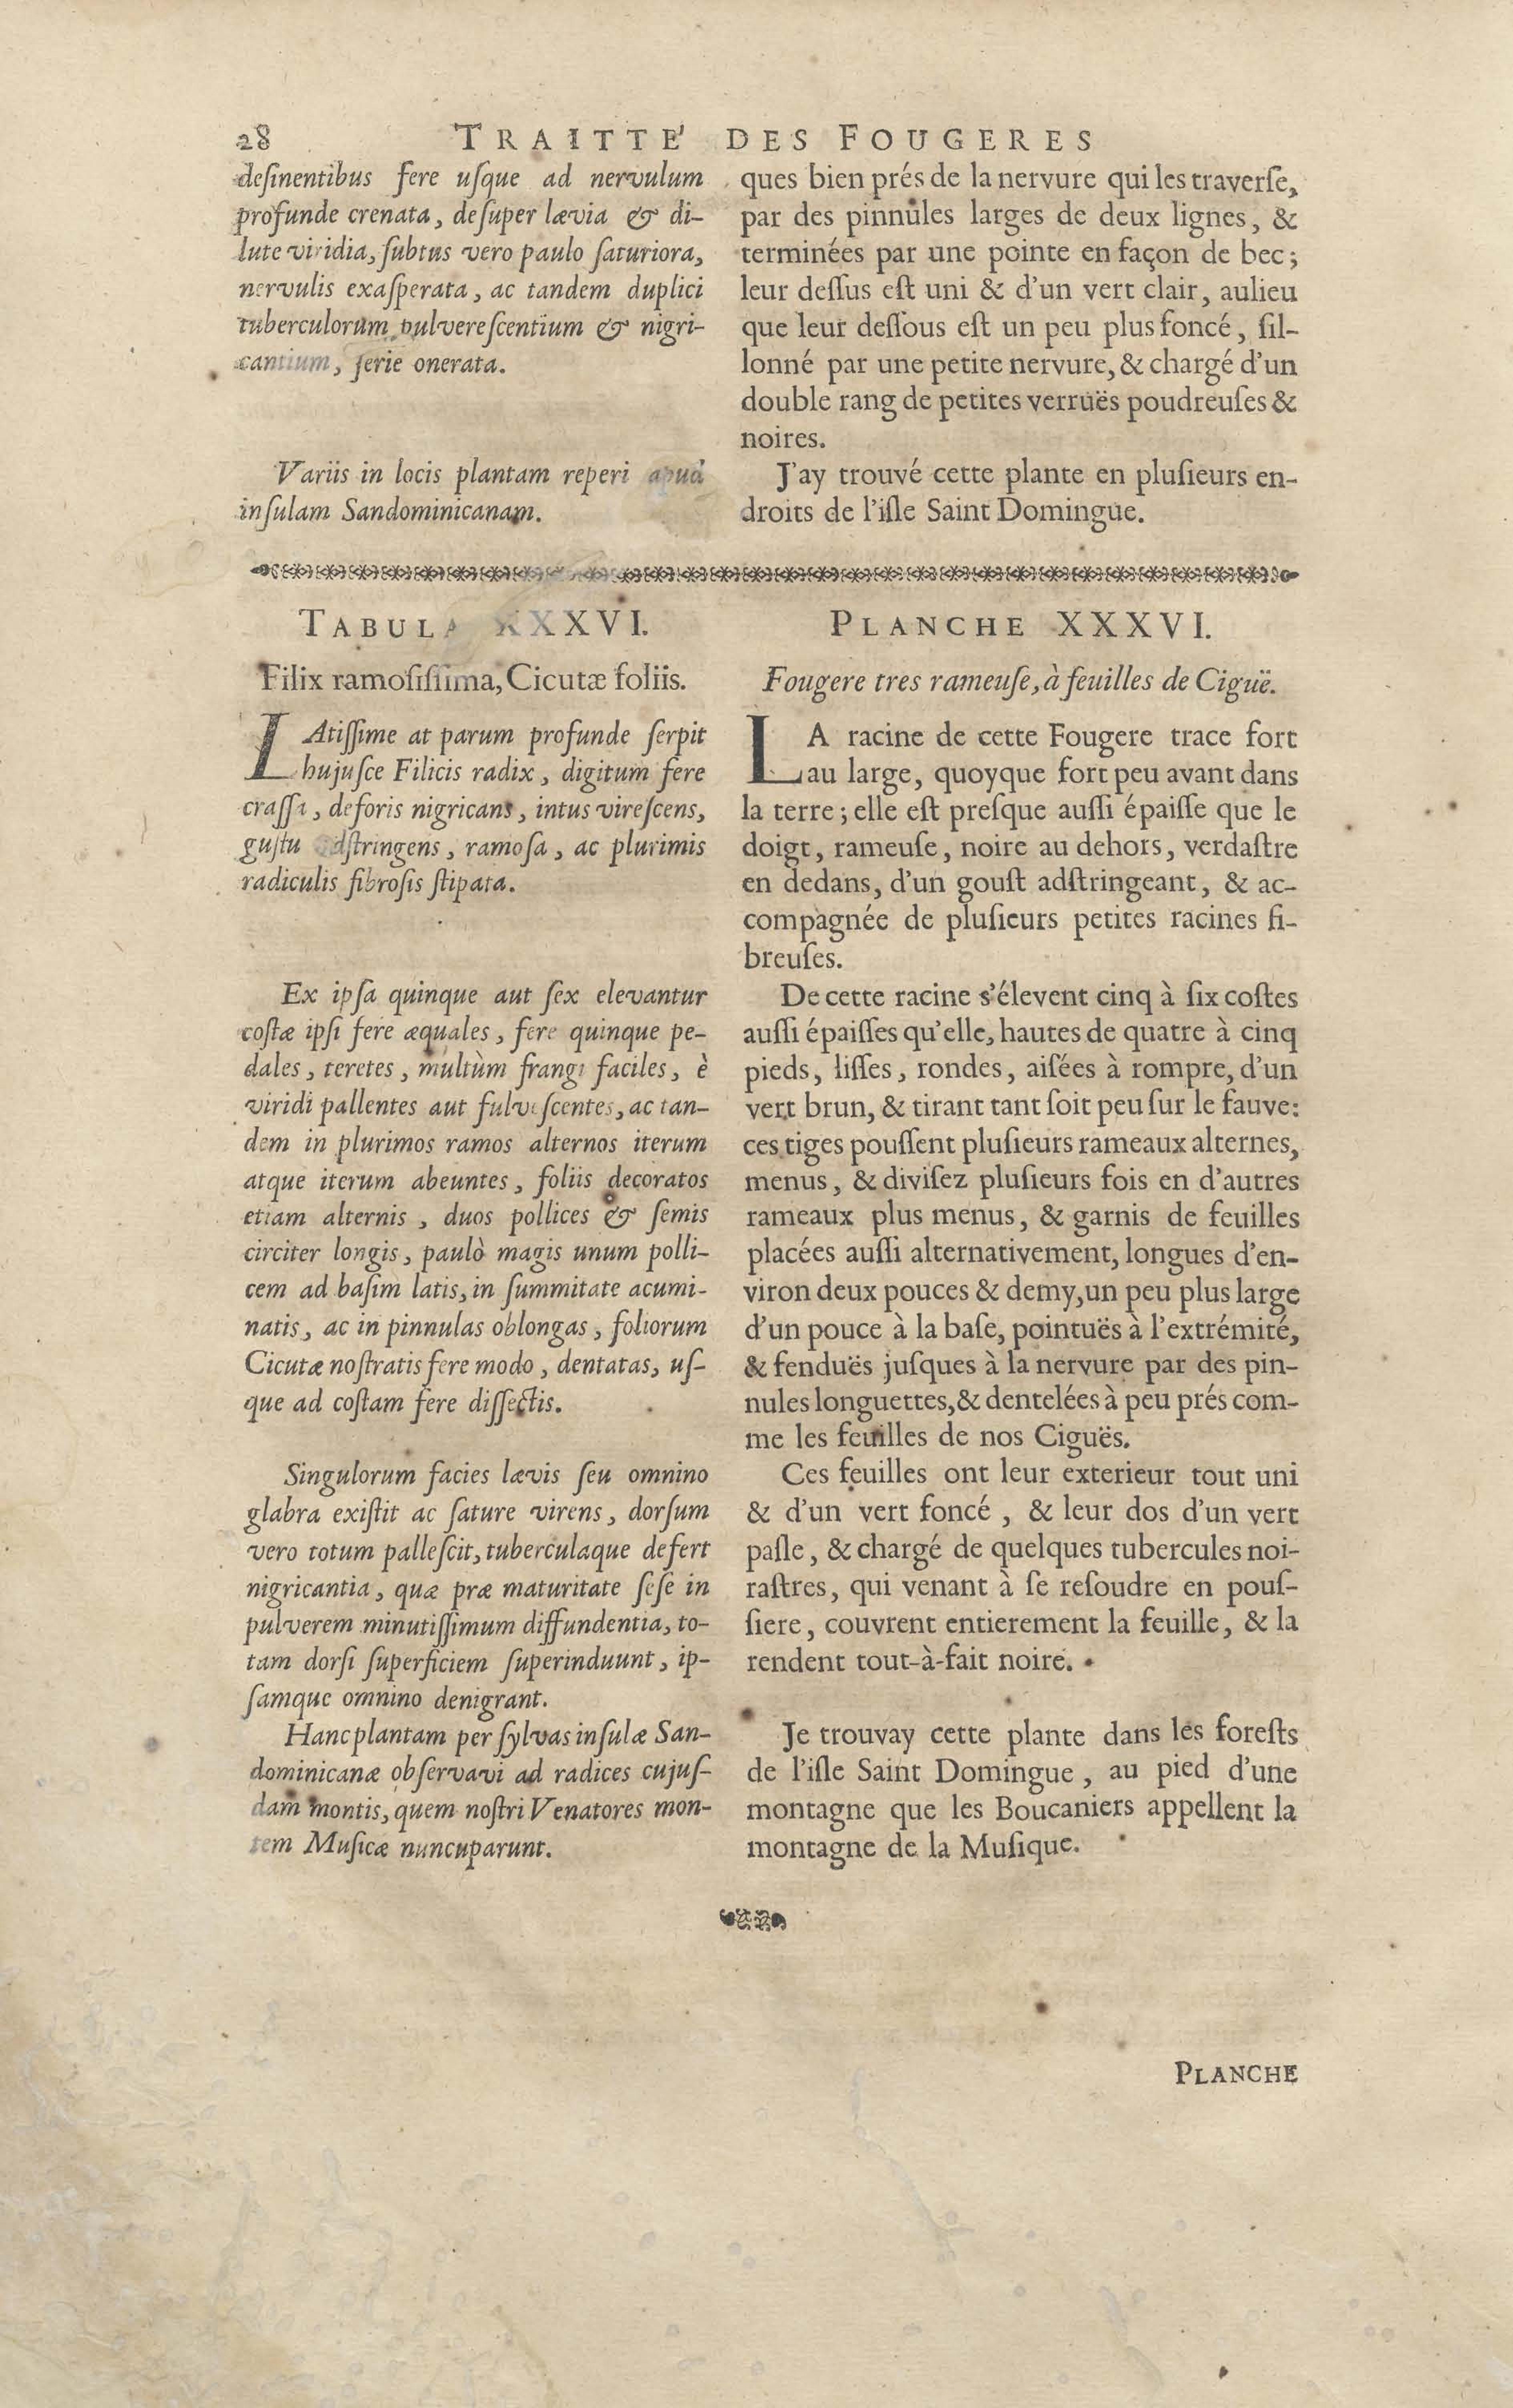 28 TRAITTE' DES FOUGERES
deſinentibus fere uſque ad nervulum
profunde crenata, deſuper lævia & di-
lute viridia, ſubtus vero paulo ſaturiora,
nervulis exaſperata, ac tandem duplici
tuberculorum pulvereſcentium & nigri-
cantium, ſerie onerata.
Variis in locis plantam reperi apud
inſulam Sandominicanam.
ques bien prés de la nervure qui les traverſe,
par des pinnules larges de deux lignes, &
terminées par une pointe en façon de bec;
leur deſſus eſt uni & d'un vert clair, aulieu
que leur deſſous eſt un peu plus foncé, ſil-
lonné par une petite nervure, & chargé d'un
double rang de petites verruës poudreuſes &
noires.
J'ay trouvé cette plante en pluſieurs en-
droits de l'iſle Saint Domingue.
TABULA XXXVI.
Filix ramoſiſſima, Cicutæ foliis.
LAtiſſime at parum profunde ſerpit
hujuſce Filicis radix, digitum fere
craſſa, deforis nigricans, intus vireſcens,
guſtu adſtringens, ramoſa, ac plurimis
radiculis fibroſis ſtipata.
Ex ipſa quinque aut ſex elevantur
coſtæ ipſi fere æquales, fere quinque pe-
dales, teretes, multùm frangi faciles, è
viridi pallentes aut fulveſcentes, ac tan-
dem in plurimos ramos alternos iterum
atque iterum abeuntes, foliis decoratos
etiam alternis, duos pollices & ſemis
circiter longis, paulò magis unum polli-
cem ad baſim latis, in ſummitate acumi-
natis, ac in pinnulas oblongas, foliorum
Cicutæ noſtratis fere modo, dentatas, uſ-
que ad coſtam fere diſſectis.
Singulorum facies lævis ſeu omnino
glabra exiſtit ac ſature virens, dorſum
vero totum palleſcit, tuberculaque defert
nigricantia, quæ præ maturitate ſeſe in
pulverem minutiſſimum diffundentia, to-
tam dorſi ſuperficiem ſuperinduunt, ip-
ſamque omnino denigrant.
Hanc plantam per ſylvas inſulæ San-
dominicanæ obſervavi ad radices cujuſ-
dam montis, quem noſtri Venatores mon-
tem Muſicæ nuncuparunt.
PLANCHE XXXVI.
Fougere tres rameuſe, à feuilles de Ciguë.
LA racine de cette Fougere trace fort
au large, quoyque fort peu avant dans
la terre; elle eſt preſque auſſi épaiſſe que le
doigt, rameuſe, noire au dehors, verdaſtre
en dedans, d'un gouſt adſtringeant, & ac-
compagnée de pluſieurs petites racines fi-
breuſes.
De cette racine s'élevent cinq à ſix coſtes
auſſi épaiſſes qu'elle, hautes de quatre à cinq
pieds, liſſes, rondes, aiſées à rompre, d'un
vert brun, & tirant tant ſoit peu ſur le fauve:
ces tiges pouſſent pluſieurs rameaux alternes,
menus, & diviſez pluſieurs fois en d'autres
rameaux plus menus, & garnis de feuilles
placées auſſi alternativement, longues d'en-
viron deux pouces & demy, un peu plus large
d'un pouce à la baſe, pointuës à l'extrémité,
& fenduës juſques à la nervure par des pin-
nules longuettes, & dentelées à peu prés com-
me les feuilles de nos Ciguës.
Ces feuilles ont leur exterieur tout uni
& d'un vert foncé, & leur dos d'un vert
paſle, & chargé de quelques tubercules noi-
raſtres, qui venant à ſe reſoudre en pouſ-
ſiere, couvrent entierement la feuille, & la
rendent tout-à-fait noire.
Je trouvay cette plante dans les foreſts
de l'iſle Saint Domingue, au pied d'une
montagne que les Boucaniers appellent la
montagne de la Muſique.
PLANCHE